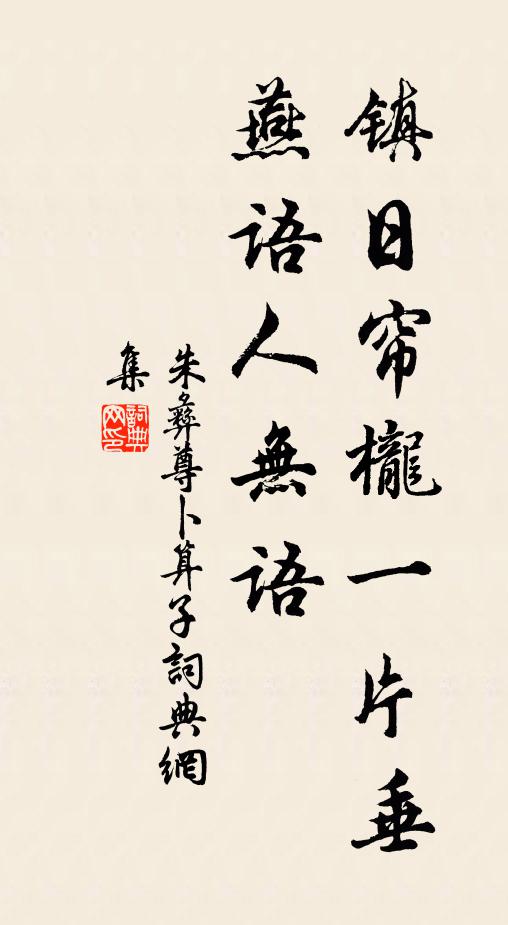 镇日帘櫳一片垂
燕语人無语
朱彝尊卜算子詞典網
集
詞典
网印